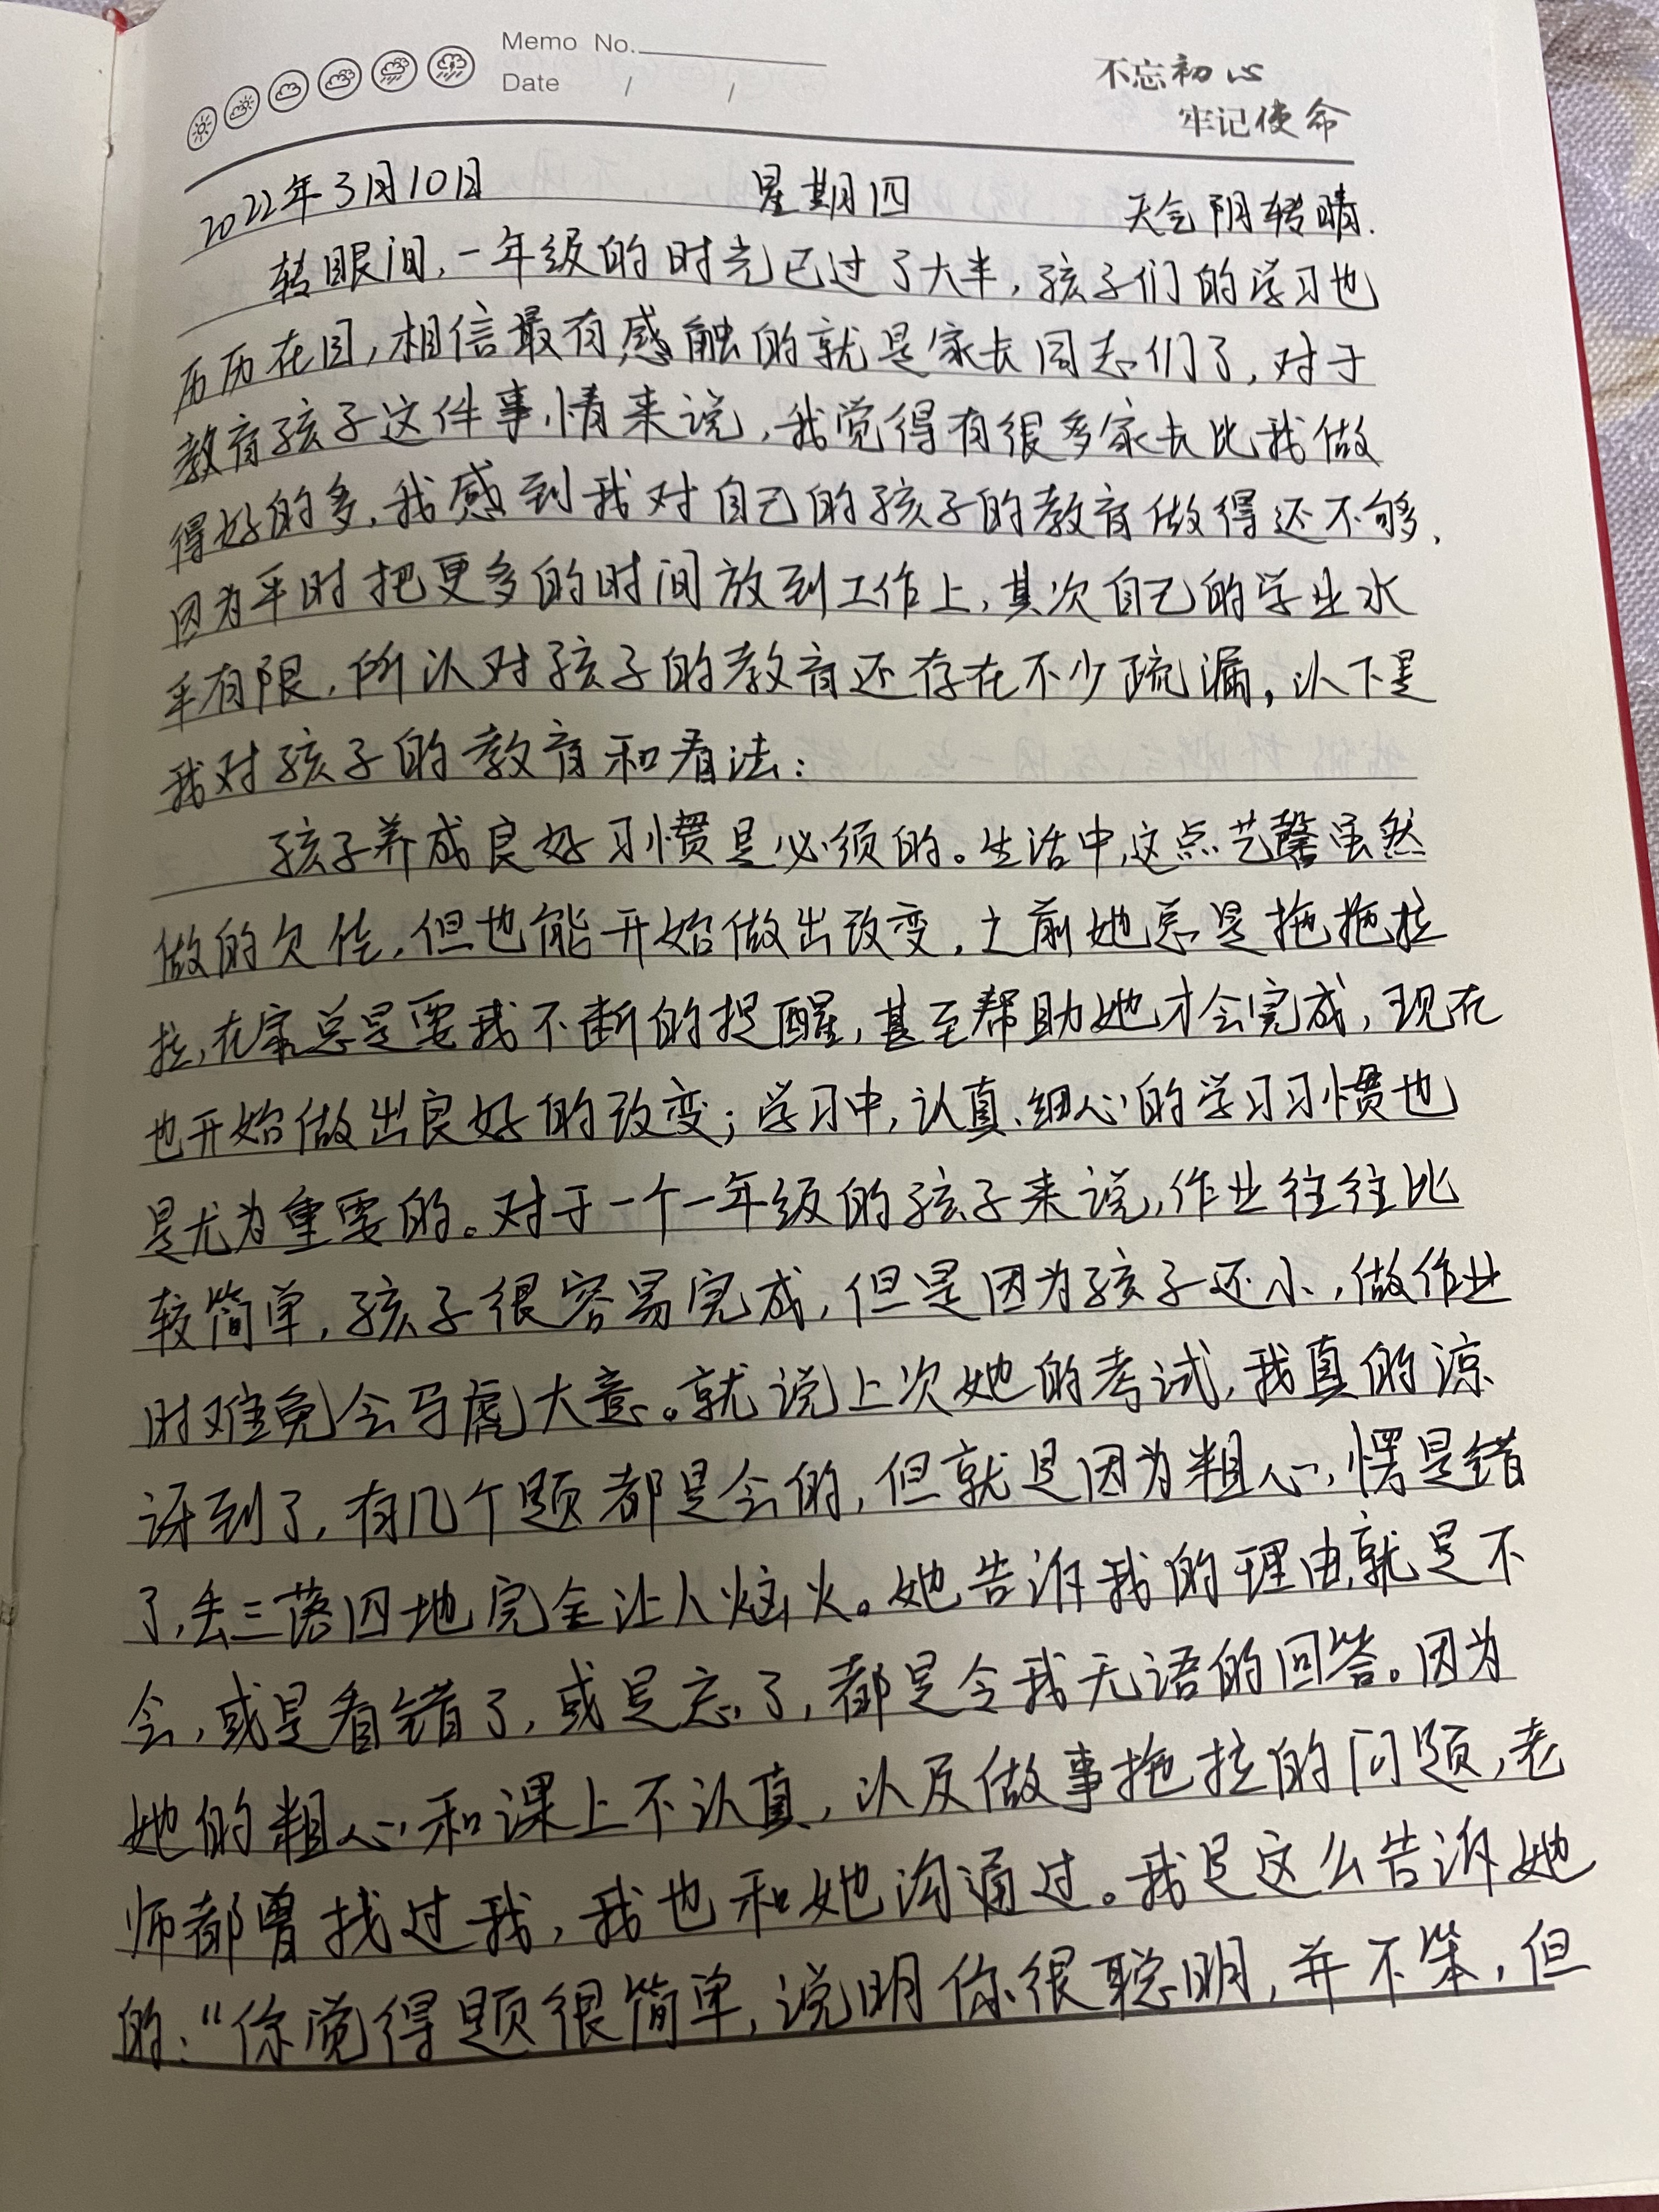 Memo No.
Date / /
不忘初心
牢记使命
2022年3月10日 星期四 天气阴转晴.
转眼间,一年级的时光已过了大半,孩子们的学习也
历历在目,相信最有感触的就是家长同志们了,对于
教育孩子这件事情来说,我觉得有很多家长比我做
得好的多,我感到我对自己的孩子的教育做得还不够,
因为平时把更多的时间放到工作上,其次自己的学业水
平有限,所以对孩子的教育还存在不少疏漏,以下是
我对孩子的教育和看法:
孩子养成良好习惯是必须的。生活中,这点艺馨虽然
做的欠佳,但也能开始做出改变,之前她总是拖拖拉
拉,在家总是要我不断的提醒,甚至帮助她才会完成,现在
也开始做出良好的改变;学习中,认真、细心的学习习惯也
是尤为重要的。对于一个一年级的孩子来说,作业往往比
较简单,孩子很容易完成,但是因为孩子还小,做作业
时难免会马虎大意。就说上次她的考试,我真的凉
讶到了,有几个题都是会的,但就是因为粗心,愣是错
了,丢三落四地完全让人恼火。她告诉我的理由就是不
会,或是看错了,或是忘了,都是令我无语的回答。因为
她的粗心和课上不认真,以及做事拖拉的问题,老
师都曾找过我,我也和她沟通过。我是这么告诉她
的:“你觉得题很简单,说明你很聪明,并不笨,但